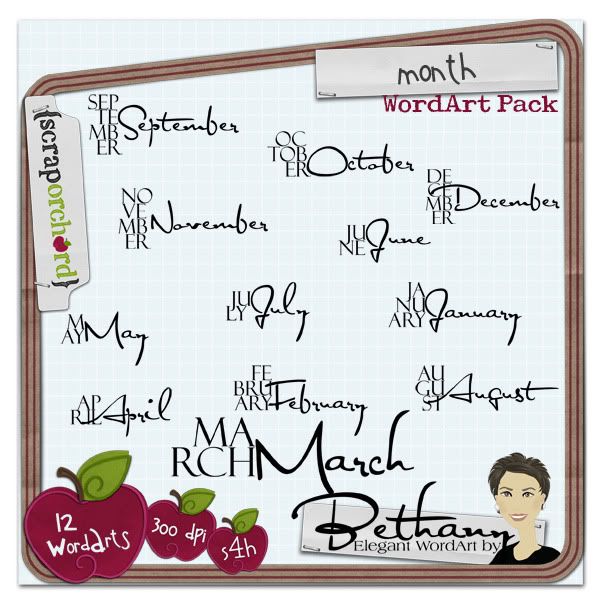 month
WordArt Pack
{scraporchard}
SEP
TE
MB
ER September
OC
TOB
ER October
DE
CE
MB
ER December
NO
VE
MB
ER November
JU
NE June
M
AY May
JU
LY July
JA
NU
ARY January
AP
RIL April
FE
BRU
ARY February
AU
GU
ST August
MA
RCH March
12
WordArts
300 dpi
s4h
Bethany
Elegant WordArt by